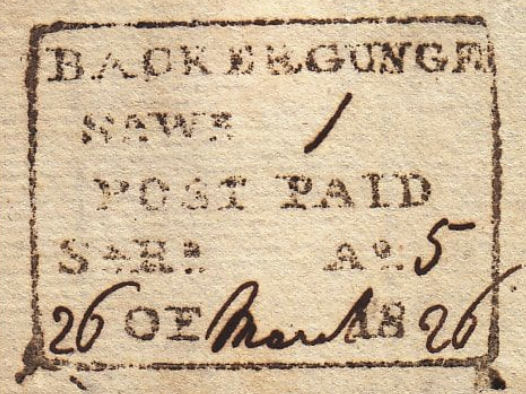 BACKERGUNGE
1
POST PAID
As. 5
26 OF March 1826